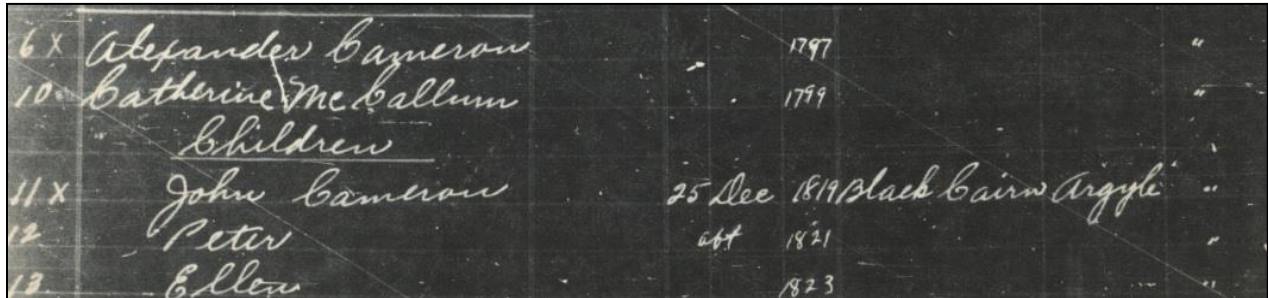 6 X Alexander Cameron 1797 "
10 Catherine McCallum 1799 "
Children
11 X John Cameron 25 Dec 1819 Black Cairn Argyle "
12 Peter abt 1821 "
13 Ellen 1823 "